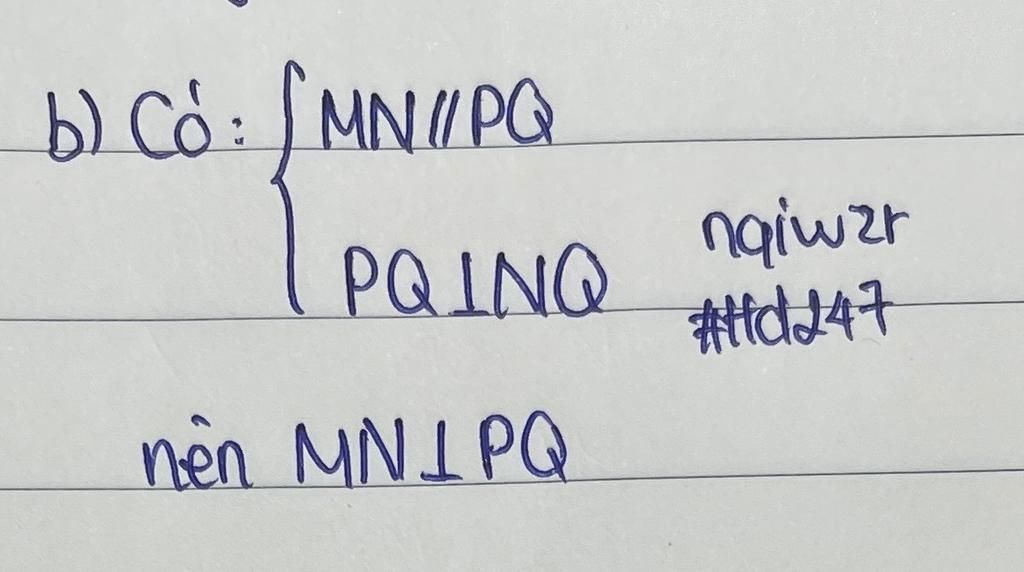 b) Có: { MN // PQ
PQ ⊥ NQ
nqiwzr
#Hd247
nên MN ⊥ PQ